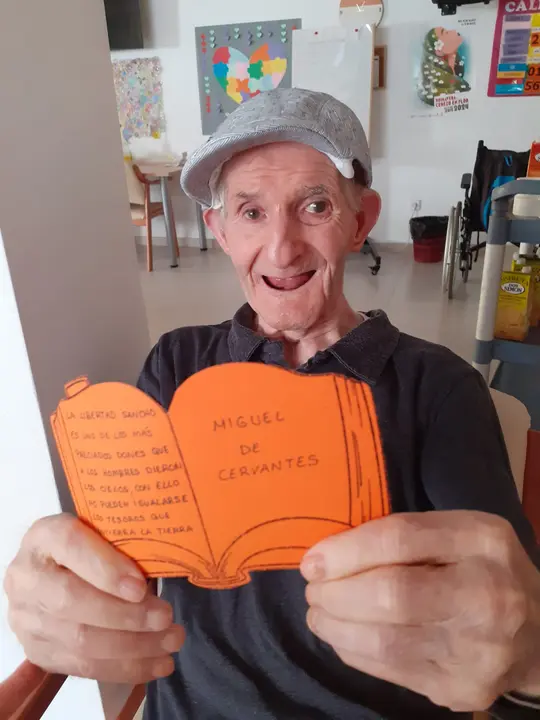 LA LIBERTAD, SANCHO
ES UNO DE LOS MÁS
PRECIADOS DONES QUE
A LOS HOMBRES DIERON
LOS CIELOS, CON ELLO
NO PUEDEN IGUALARSE
LOS TESOROS QUE
LA TIERRA
MIGUEL
DE
CERVANTES
2024
DON
SIMON